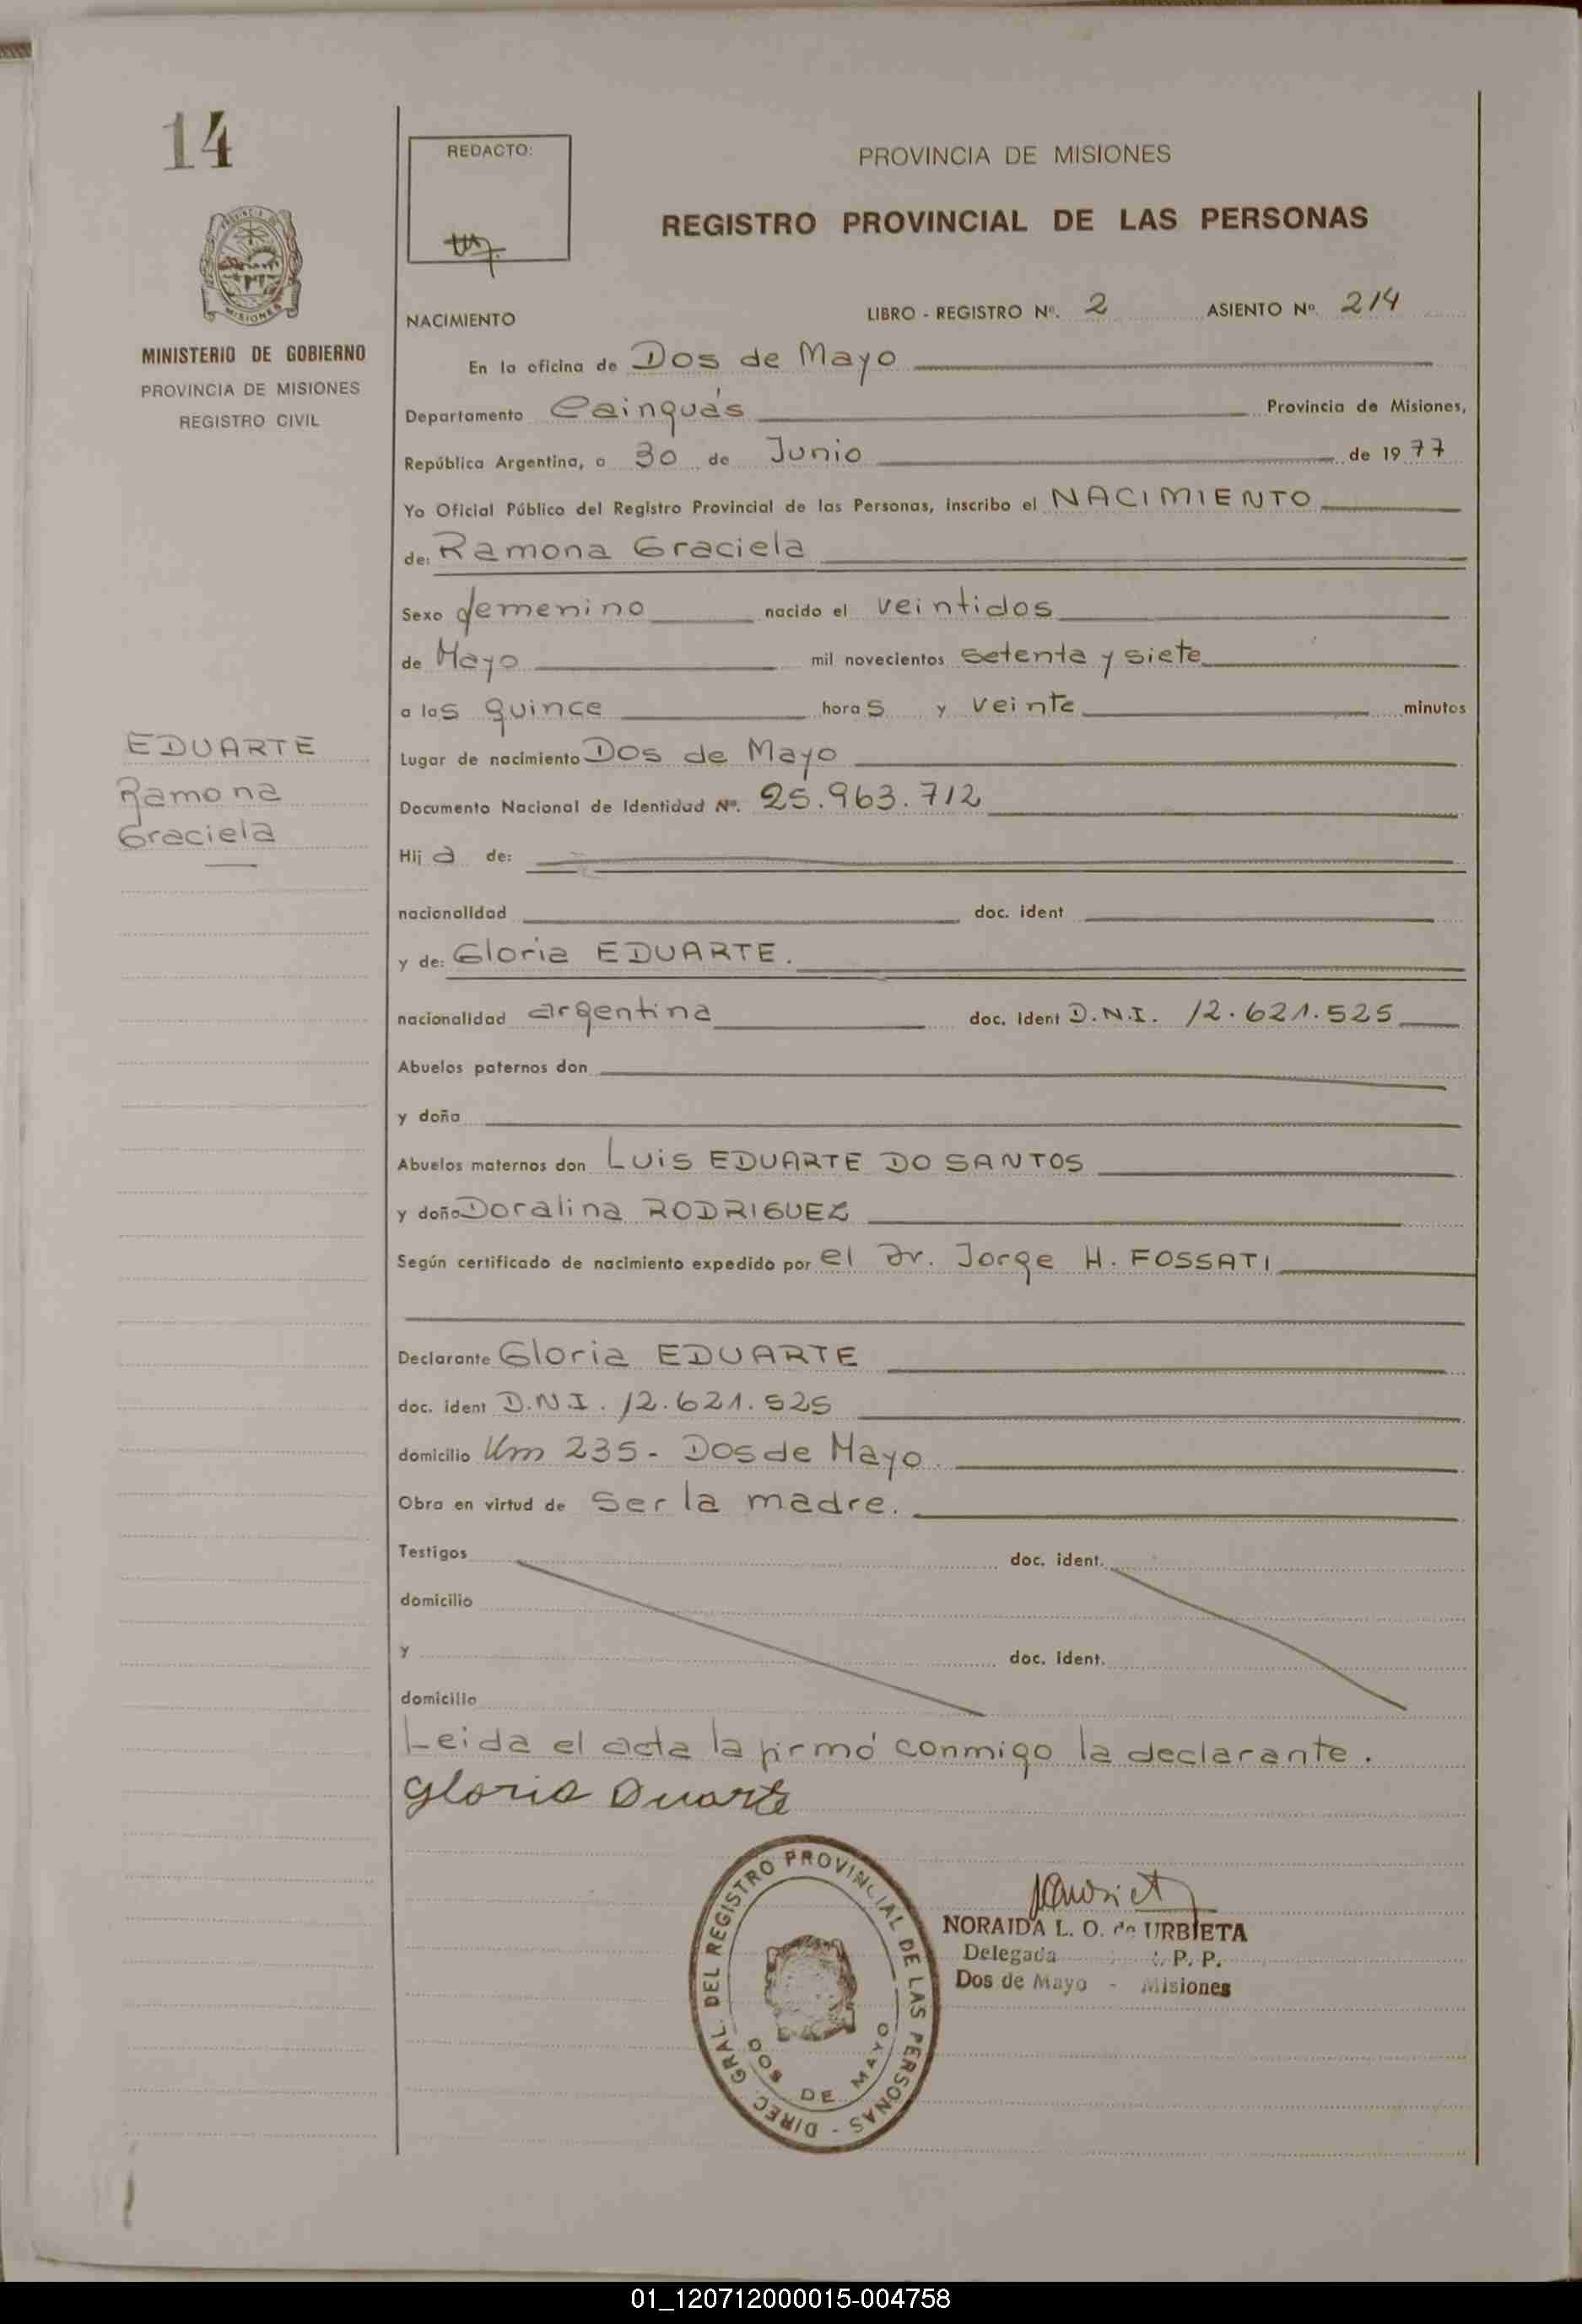 14
REDACTO:
PROVINCIA DE MISIONES
REGISTRO PROVINCIAL DE LAS PERSONAS
MISIONES
MINISTERIO DE GOBIERNO
PROVINCIA DE MISIONES
REGISTRO CIVIL
NACIMIENTO LIBRO - REGISTRO Nº. 2 ASIENTO Nº. 214
En la oficina de Dos de Mayo
Departamento Cainguás Provincia de Misiones,
República Argentina, a 30 de Junio de 1977
Yo Oficial Público del Registro Provincial de las Personas, inscribo el NACIMIENTO
de: Ramona Graciela
Sexo femenino nacido el veintidos
de Mayo mil novecientos setenta y siete
a las quince horas y veinte minutos
EDUARTE
Ramona
Graciela
Lugar de nacimiento Dos de Mayo
Documento Nacional de Identidad Nº. 25.963.712
Hija de:
nacionalidad doc. ident
y de: Gloria EDUARTE.
nacionalidad argentina doc. ident D.N.I. 12.621.525
Abuelos paternos don
y doña
Abuelos maternos don Luis EDUARTE DO SANTOS
y doña Doralina RODRIGUEZ
Según certificado de nacimiento expedido por el Dr. Jorge H. FOSSATI
Declarante Gloria EDUARTE
doc. ident D.N.I. 12.621.525
domicilio Km 235 - Dos de Mayo.
Obra en virtud de ser la madre.
Testigos doc. ident.
domicilio
y doc. ident.
domicilio
Leida el acta la firmó conmigo la declarante.
Gloria Duarte
DIREC. GRAL. DEL REGISTRO PROVINCIAL DE LAS PERSONAS -
DOS DE MAYO
NORAIDA L. O. de URBIETA
Delegada P. P.
Dos de Mayo - Misiones
01_120712000015-004758